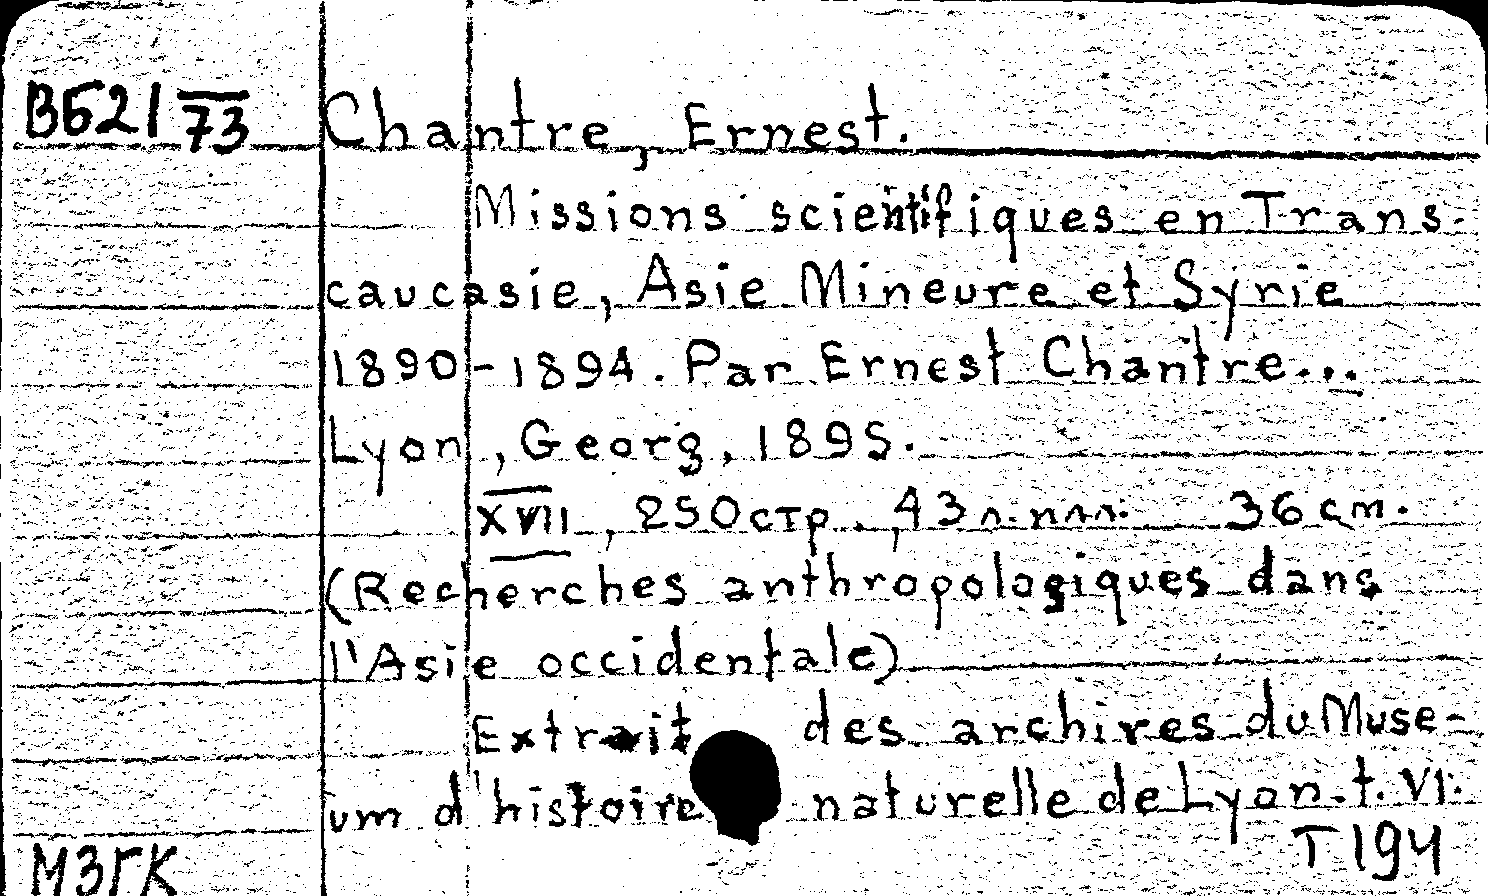 В621 73 Chantre, Ernest.
Missions scientifiques en Trans-
caucasie, Asie Mineure et Syrie
1890-1894. Par Ernest Chantre...
Lyon, Georg, 1895.
XVII, 250 стр., 43 л. илл. 36 см.
(Recherches anthropologiques dans
l'Asie occidentale)
Extrait des archires du Muse-
um d'histoire naturelle de Lyon. t. VI.
T 194
МЗГК